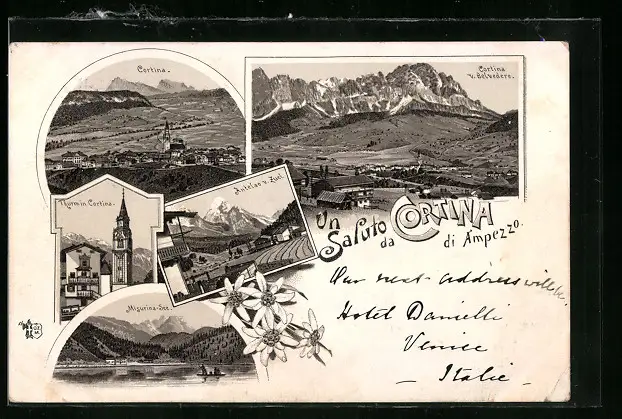 Cortina.
Cortina
v. Belvedere.
Thurm in Cortina.
Antelao v. Zuel.
Misurina-See.
Un
Saluto
da
CORTINA
di Ampezzo.
Our next address will be,
Hotel Danielli
Venice
— Italie —